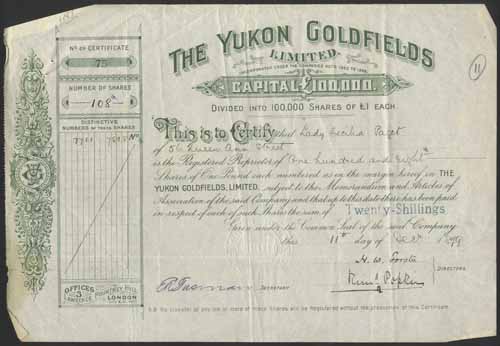 No OF CERTIFICATE
75
NUMBER OF SHARES
108
DISTINCTIVE
NUMBERS OF THESE SHARES
OFFICES
3
LAURENCE
POUNTNEY HILL
LONDON
11
THE YUKON GOLDFIELDS
LIMITED.
INCORPORATED UNDER THE COMPANIES ACTS 1862 TO
CAPITAL £100,000.
DIVIDED INTO 100,000 SHARES OF £1 EACH.
This is to Certify that Lady Cecilia Paget
of 56 Queen Ann Street
is the Registered Proprietor of One hundred and eight
Shares of One Pound each numbered as in the margin hereof in THE
YUKON GOLDFIELDS, LIMITED, subject to the Memorandum and Articles of
Association of the said Company and that up to this date there has been paid
in respect of each of such Shares the sum of Twenty-Shillings
Given under the Common Seal of the said Company
this 11th day of
DIRECTORS.
SECRETARY
N.B. No transfer of any one or more of these Shares will be Registered without the production of this Certificate.